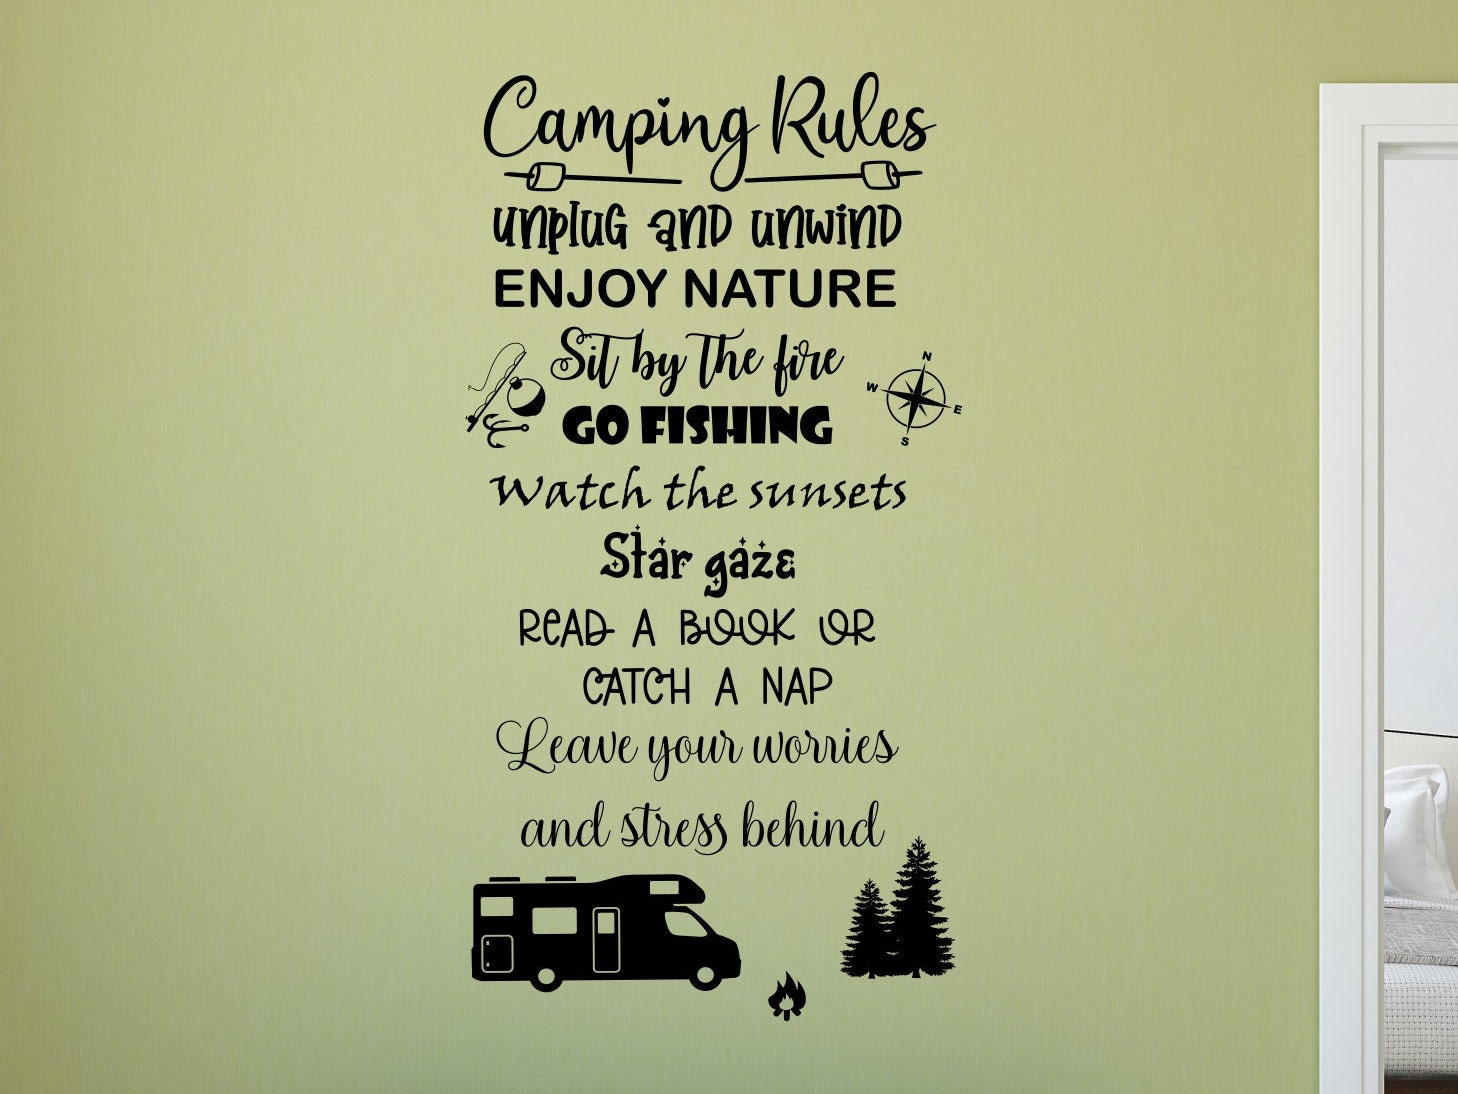 Camping Rules
unplug and unwind
ENJOY NATURE
Sit by the fire
GO FISHING
N
W
E
S
Watch the sunsets
Star gaze
READ A BOOK OR
CATCH A NAP
Leave your worries
and stress behind